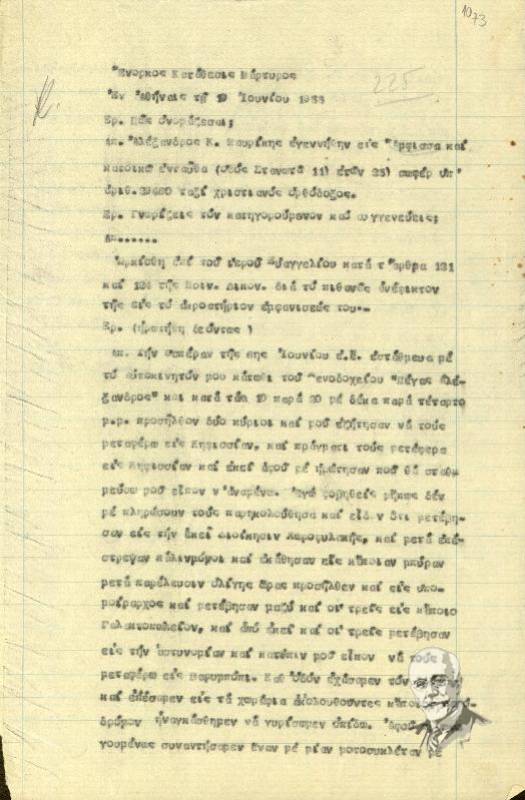 1073
225
Ἔνορκος Κατάθεσις Μάρτυρος
Ἐν Ἀθήναις τῇ 19 Ἰουνίου 1933
Ἐρ. Πῶς ὀνομάζεσαι;
Ἀπ. Ἀλέξανδρος Κ. Μαυρίκης ἐγεννήθην εἰς Ἄμφισσα καί
κατοικῶ ἐνταῦθα (ὁδός 11) ἐτῶν 25) σωφέρ ὑπ'
ἀριθ. ταξί χριστιανός ὀρθόδοξος.
Ἐρ. Γνωρίζεις τόν κατηγορούμενον καί συγγενεύεις;
Ἀπ.......
Ὡρκίσθη ἐπί τοῦ ἱεροῦ Εὐαγγελίου κατά τ'ἄρθρα 121
καί τῆς Ποιν. Δικον. διά τό πιθανῶς ἀνέφικτον
τῆς εἰς τό ἀκροατήριον ἐμφανίσεώς του.-
Ἐρ. (ἠρωτήθη δεόντως )
Ἀπ. Τήν ἑσπέραν τῆς 6ης Ἰουνίου ἐ.ἔ. ἐστάθμευα μέ
τό αὐτοκίνητόν μου κάτωθι τοῦ Ξενοδοχείου "Μέγας Ἀλέ-
ξανδρος" καί κατά τάς 10 παρά 20 μέ δέκα παρά τέταρτο
μ.μ. προσῆλθον δύο κύριοι καί μοῦ ἐζήτησαν νά τούς
μεταφέρω εἰς Κηφισσίαν, καί πράγματι τούς μετέφερα
εἰς Κηφισσίαν καί ἐκεῖ ἀφοῦ μέ ἠρώτησαν ποῦ θά σταθμ
μεύσω μοῦ εἶπον ν'ἀναμένω. Ἐγώ φοβηθείς μήπως δέν
μέ πληρώσουν τούς παρηκολούθησα καί εἶδον ὅτι μετέβη-
σαν εἰς τήν ἐκεῖ Διοίκησιν Χωροφυλακῆς, καί μετά ἐπέ-
στρεψαν καί ἐκάθησαν εἰς κάποιαν μπύραν
μετά παρέλευσιν ὀλίγης ὥρας προσῆλθεν καί εἷς ὑπο-
μοίραρχος καί μετέβησαν μαζύ καί οἱ τρεῖς εἰς κάποιο
Γαλακτοπωλεῖον, καί ἀπό ἐκεῖ καί οἱ τρεῖς μετέβησαν
εἰς τήν ἀστυνομίαν καί κατόπιν μοῦ εἶπον νά τούς
μεταφέρω εἰς Βαρυμπόπι. Καθ'ὁδόν ἐχάσαμεν τόν
καί ἐπέσαμεν εἰς τά χωράφια ἀκολουθοῦντες
δρόμον ἠναγκάσθημεν νά γυρίσωμεν ὀπίσω.
γουμένως συναντήσαμεν ἕναν μέ μίαν μοτοσυκλέταν μέ